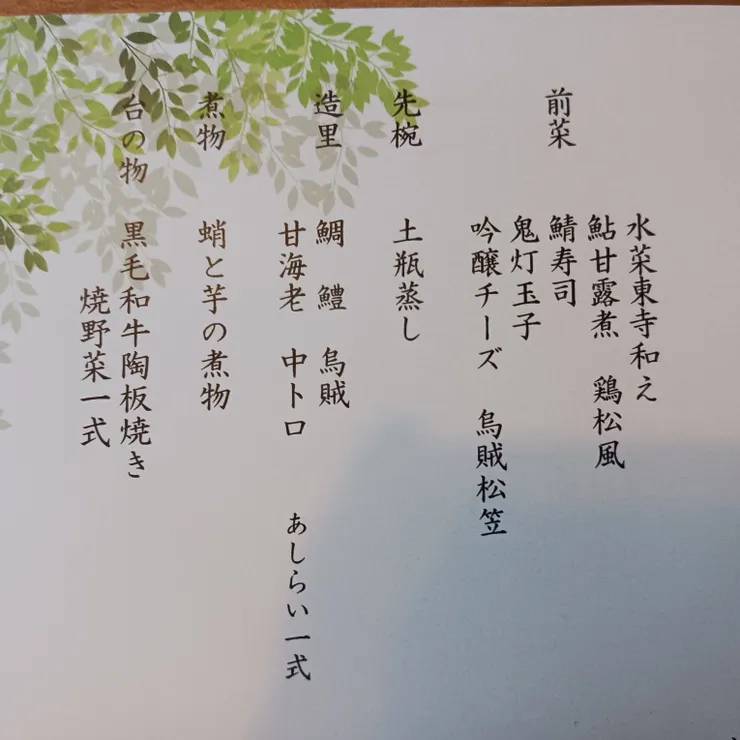 前菜
水菜東寺和え
鮎甘露煮　鶏松風
鯖寿司
鬼灯玉子
吟醸チーズ　烏賊松笠
先椀
土瓶蒸し
造里
鯛　鱧　烏賊
甘海老　中トロ　あしらい一式
煮物
蛸と芋の煮物
台の物
黒毛和牛陶板焼き
焼野菜一式